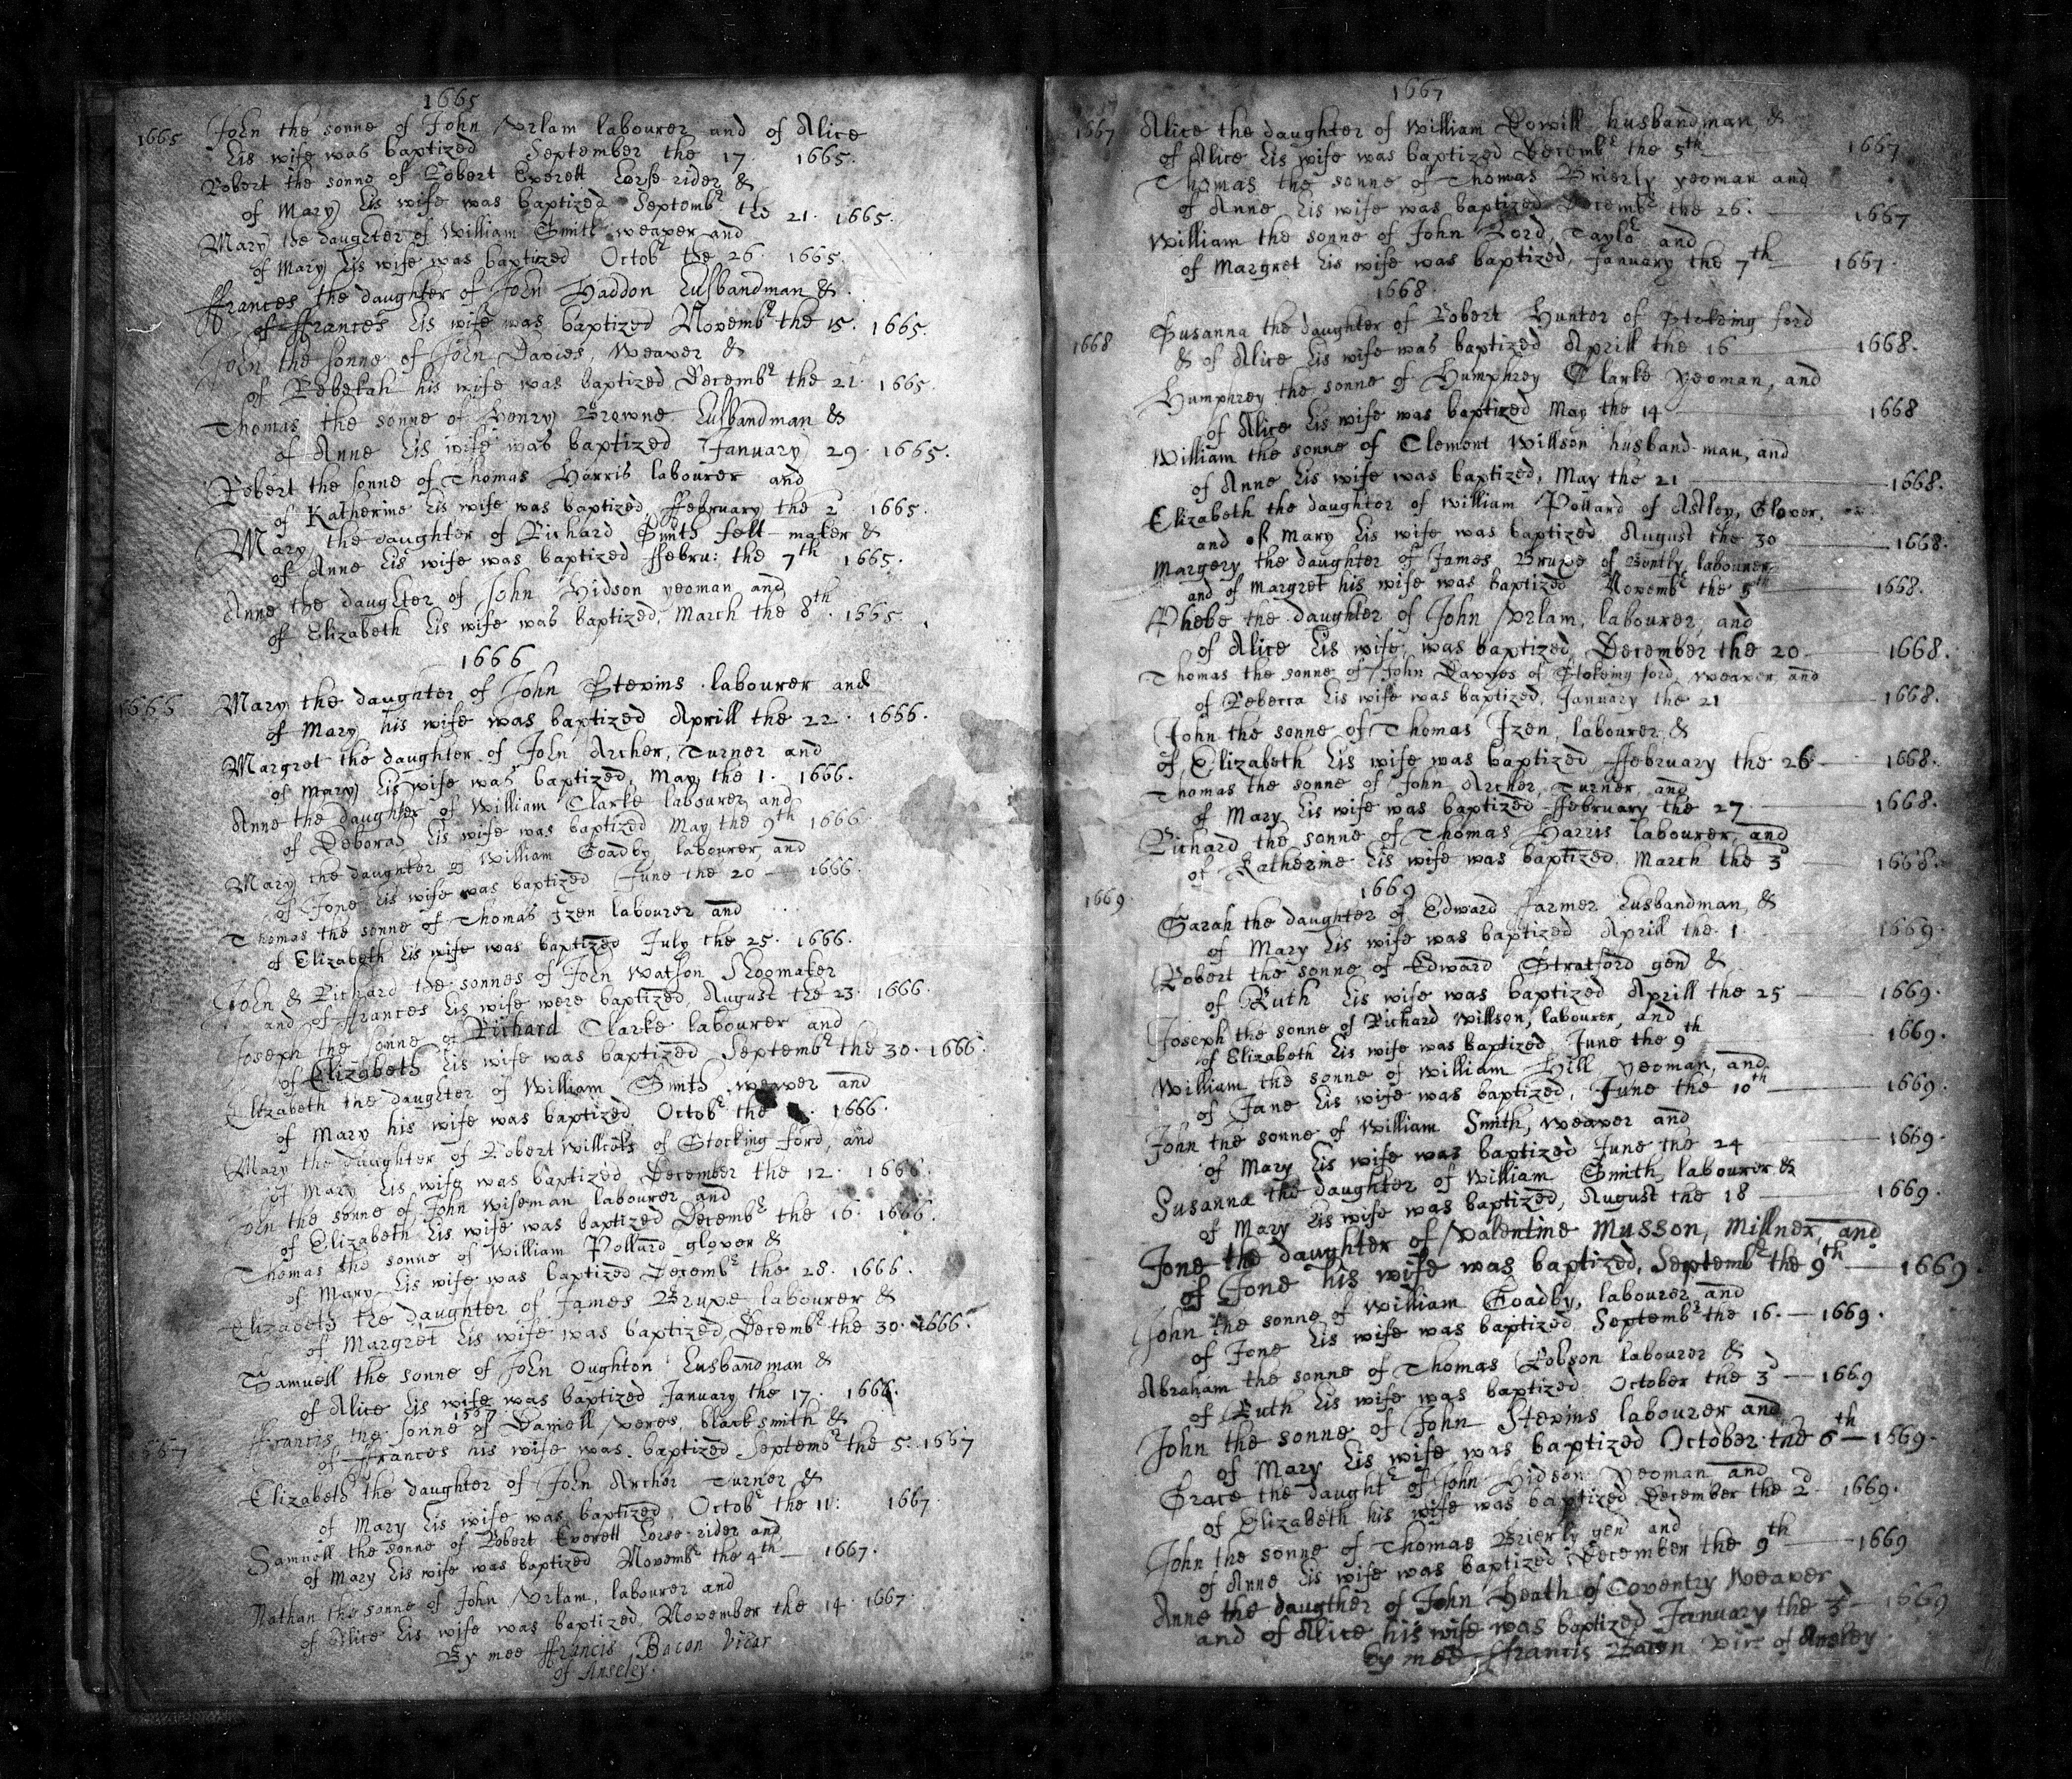 1665
1665 John the sonne of John Vrlam labourer and of Alice
his wife was baptized September the 17. 1665.
Robert the sonne of Robert Everett horse rider &
of Mary his wife was baptized Septembr the 21. 1665.
Mary the daughter of William Smith weaver and
of Mary his wife was baptized Octobr the 26. 1665.
ffrances the daughter of John Haddon husbandman &
of ffrances his wife was baptized Novembr the 15. 1665.
John the sonne of John Davies, Weaver &
of Rebekah his wife was baptized Decembr the 21. 1665.
Thomas the sonne of Henry Browne husbandman &
of Anne his wife was baptized January 29. 1665.
Robert the sonne of Thomas Harris labourer and
of Katherine his wife was baptized ffebruary the 2. 1665.
Mary the daughter of Richard Smith felt-maker &
of Anne his wife was baptized ffebru: the 7th 1665.
Anne the daughter of John Hidson yeoman and
of Elizabeth his wife was baptized, March the 8th. 1665.
1666
1666 Mary the daughter of John Stevins labourer and
of Mary his wife was baptized Aprill the 22. 1666.
Margret the daughter of John Archer, Turner and
of Mary his wife was baptized, May the 1. 1666.
Anne the daughter of William Clarke labourer and
of Deborah his wife was baptized May the 9th 1666
Mary the daughter of William Goadby labourer, and
of Jone his wife was baptized June the 20 — 1666.
Thomas the sonne of Thomas Izen labourer and
of Elizabeth his wife was baptized July the 25. 1666.
John & Richard the sonnes of John Watson Shoomaker
and of ffrances his wife were baptized, August the 23. 1666.
Joseph the sonne of Richard Clarke labourer and
of Elizabeth his wife was baptized Septembr the 30. 1666.
Elizabeth the daughter of William Smith weaver and
of Mary his wife was baptized Octobr the 1666.
Mary the daughter of Robert Willcots of Stocking ford, and
of Mary his wife was baptized December the 12. 1666.
John the sonne of John Wiseman labourer and
of Elizabeth his wife was baptized Decembr the 16. 1666.
Thomas the sonne of William Pollard glover &
of Mary his wife was baptized Decembr the 28. 1666.
Elizabeth the daughter of James Brupe labourer &
of Margret his wife was baptized Decembr the 30. 1666.
Samuell the sonne of John Oughton husbandman &
of Alice his wife was baptized January the 17. 1666.
1667
1667 ffrancis the sonne of Daniell Veres blacksmith &
of ffrances his wife was baptized Septembr the 5. 1667
Elizabeth the daughter of John Archer Turner &
of Mary his wife was baptized Octobr the 11: 1667.
Samuell the sonne of Robert Everett horse-rider and
of Mary his wife was baptized Novembr the 4th — 1667.
Nathan the sonne of John Vrlam, labourer and
of Alice his wife was baptized, November the 14. 1667.
By mee ffrancis Bacon Vicar
of Anseley.
1667
1667 Alice the daughter of William Dowill husbandman &
of Alice his wife was baptized Decembr the 5th — 1667
Thomas the sonne of Thomas Brierly yeoman and
of Anne his wife was baptized Decembr the 26. — 1667
William the sonne of John Lord, Taylor and
of Margret his wife was baptized, January the 7th — 1667.
1668
1668 Susanna the daughter of Robert Hunter of Stocking ford
& of Alice his wife was baptized Aprill the 16 — 1668.
Humphrey the sonne of Humphrey Clarke yeoman, and
of Alice his wife was baptized May the 14 — 1668
William the sonne of Clement Willson husband-man, and
of Anne his wife was baptized, May the 21 — 1668.
Elizabeth the daughter of William Pollard of Astley, Glover,
and of Mary his wife was baptized August the 30 — 1668.
Margery the daughter of James Brupe of Bently labourer
and of Margret his wife was baptized Novembr the 5th — 1668.
Phebe the daughter of John Vrlam, labourer, and
of Alice his wife was baptized, December the 20 — 1668.
Thomas the sonne of John Davyes of Stoking ford Weaver and
of Rebecca his wife was baptized, January the 21 — 1668.
John the sonne of Thomas Izen, labourer, &
of Elizabeth his wife was baptized, ffebruary the 26 — 1668.
Thomas the sonne of John Archer, Turner, and
of Mary his wife was baptized ffebruary the 27. — 1668.
Richard the sonne of Thomas Harris labourer, and
of Katherine his wife was baptized, March the 3d — 1668.
1669
1669. Sarah the daughter of Edward Farmer husbandman, &
of Mary his wife was baptized Aprill the 1. 1669.
Robert the sonne of Edward Stratford gen &
of Ruth his wife was baptized Aprill the 25 — 1669.
Joseph the sonne of Richard Willson, labourer, and
of Elizabeth his wife was baptized June the 9th — 1669.
William the sonne of William Hill yeoman, and
of Jane his wife was baptized, June the 10th — 1669.
John the sonne of William Smith, weaver and
of Mary his wife was baptized June the 24 — 1669.
Susanna the daughter of William Smith, labourer &
of Mary his wife was baptized, August the 18 — 1669.
Jone the daughter of Valentine Musson, Millner, and
of Jone his wife was baptized, Septembr the 9th — 1669.
John the sonne of William Goadby, labourer and
of Jone his wife was baptized Septembr the 16. — 1669.
Abraham the sonne of Thomas Robson labourer &
of Ruth his wife was baptized October the 3d — 1669
John the sonne of John Stevins labourer and
of Mary his wife was baptized October the 6th — 1669.
Grace the daughtr of John Hidson yeoman and
of Elizabeth his wife was baptized December the 2d 1669.
John the sonne of Thomas Brierly gen and
of Anne his wife was baptized December the 9th — 1669
Anne the daugther of John Heath of Coventry Weaver
and of Alice his wife was baptized January the 3d — 1669
by mee ffrancis Bacon Vicr of Ansley